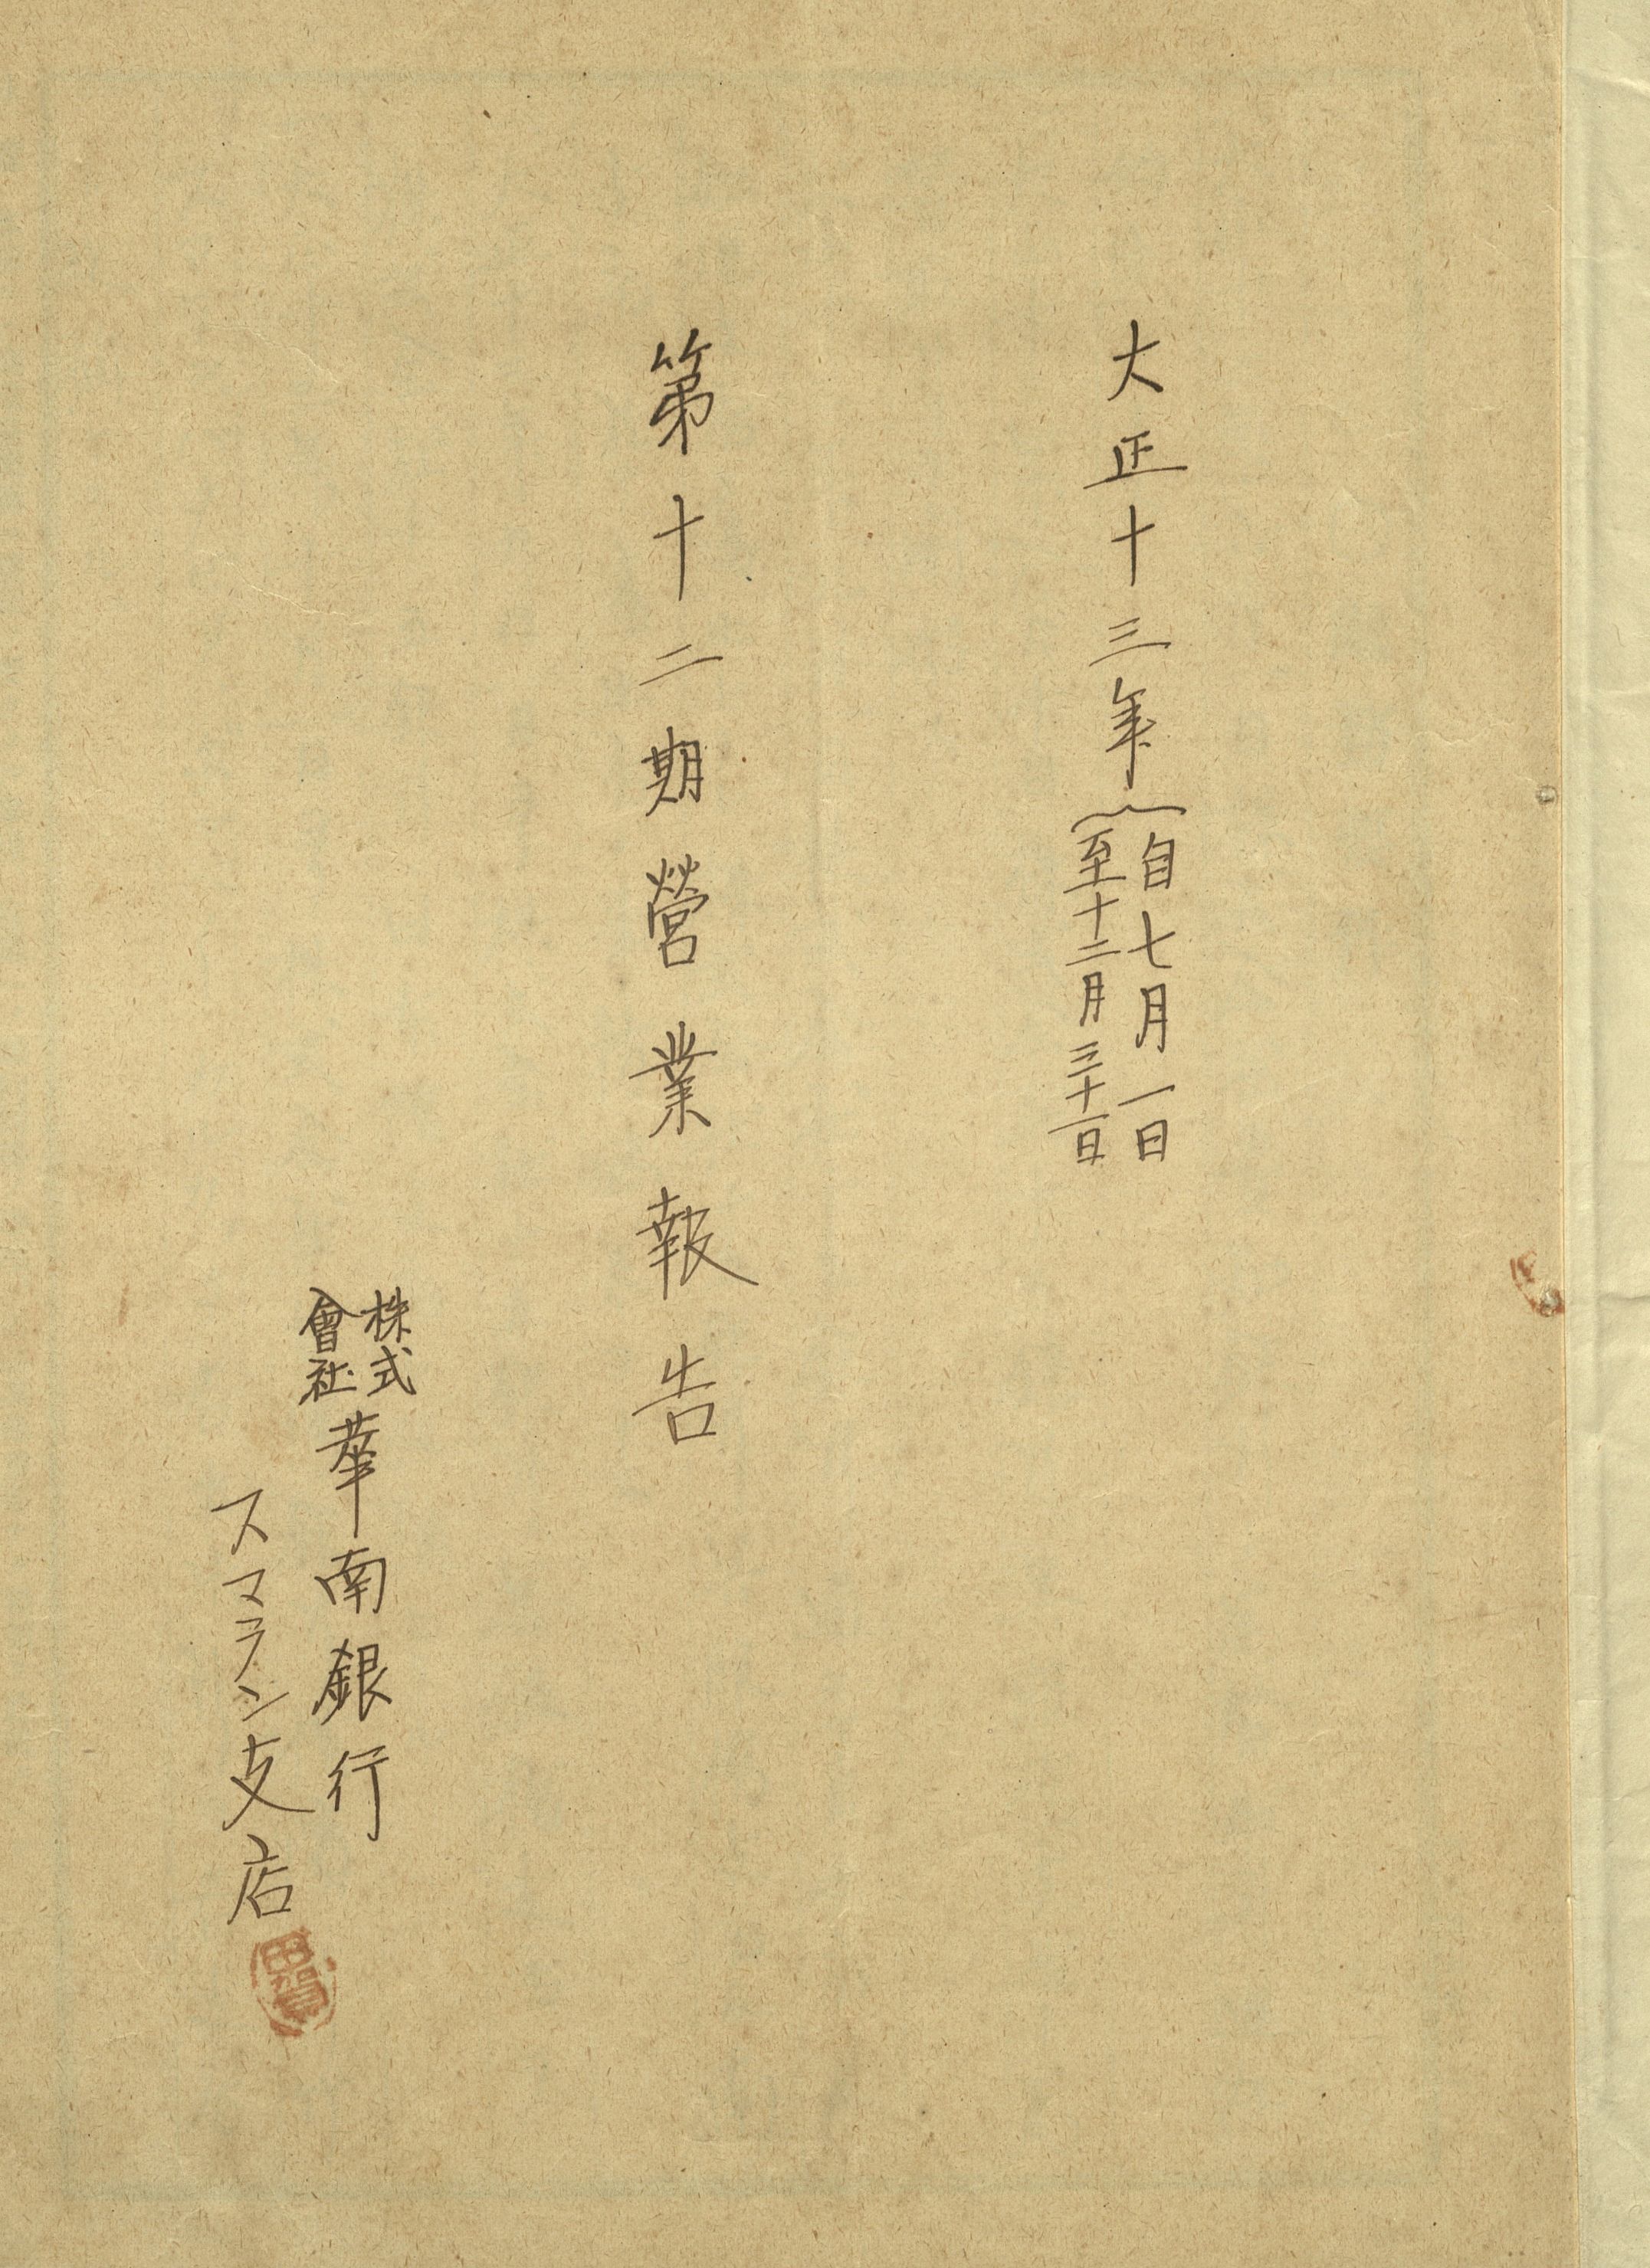 大正十三年
自七月一日
至十二月三十一日
第十二期營業報告
株式
會社
華南銀行
スマラン支店